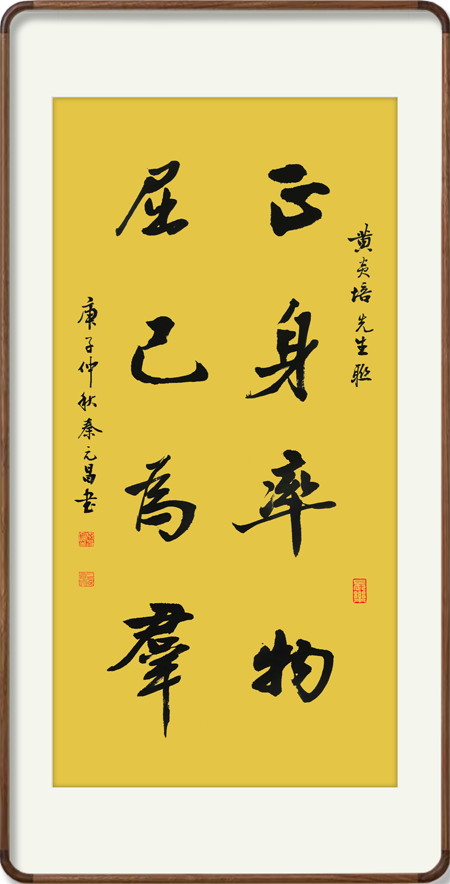 黄炎培先生联
正身率物
屈己为群
庚子仲秋秦元昌书